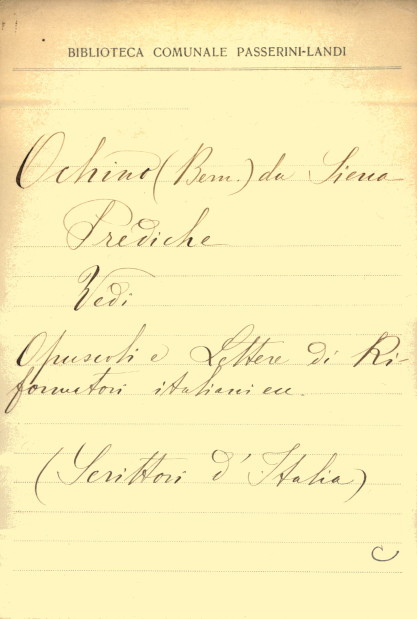 BIBLIOTECA COMUNALE PASSERINI-LANDI
Ochino (Bern.) da Siena
Prediche
Vedi
Opuscoli e Lettere di Ri-
formatori italiani ecc.
(Scrittori d'Italia)
C